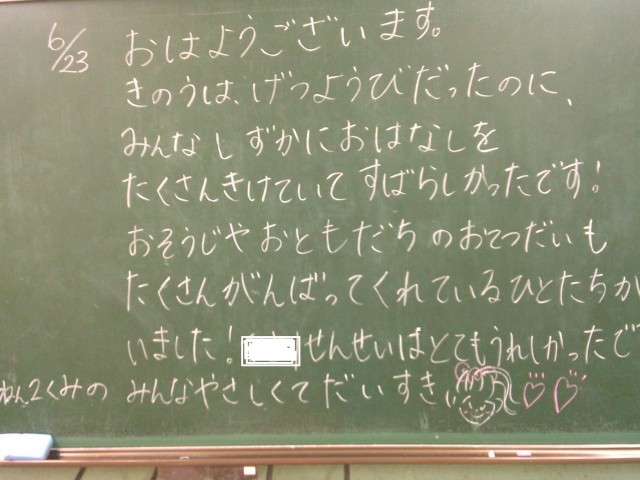 6/23
おはようございます。
きのうは、げつようびだったのに、
みんなしずかにおはなしを
たくさんきけていてすばらしかったです!
おそうじやおともだちのおてつだいも
たくさんがんばってくれているひとたちが
いました! せんせいはとてもうれしかったで
ねん2くみの みんなやさしくてだいすき